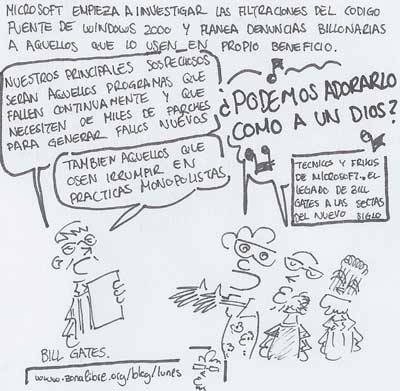 MICROSOFT EMPIEZA A INVESTIGAR LAS FILTRACIONES DEL CODIGO
FUENTE DE WINDOWS 2000 Y PLANEA DENUNCIAS BILLONARIAS
A AQUELLOS QUE LO USEN EN PROPIO BENEFICIO.
NUESTROS PRINCIPALES SOSPECHOSOS
SERAN AQUELLOS PROGRAMAS QUE
FALLEN CONTINUAMENTE Y QUE
NECESITEN DE MILES DE PARCHES
PARA GENERAR FALLOS NUEVOS
TAMBIEN AQUELLOS QUE
OSEN IRRUMPIR EN
PRACTICAS MONOPOLISTAS
¿PODEMOS ADORARLO
COMO A UN DIOS?
TECNICOS Y FRIKIS
DE MICROSOFT. EL
LEGADO DE BILL
GATES A LAS SECTAS
DEL NUEVO SIGLO
BILL GATES.
www.zonalibre.org/blog/lunes